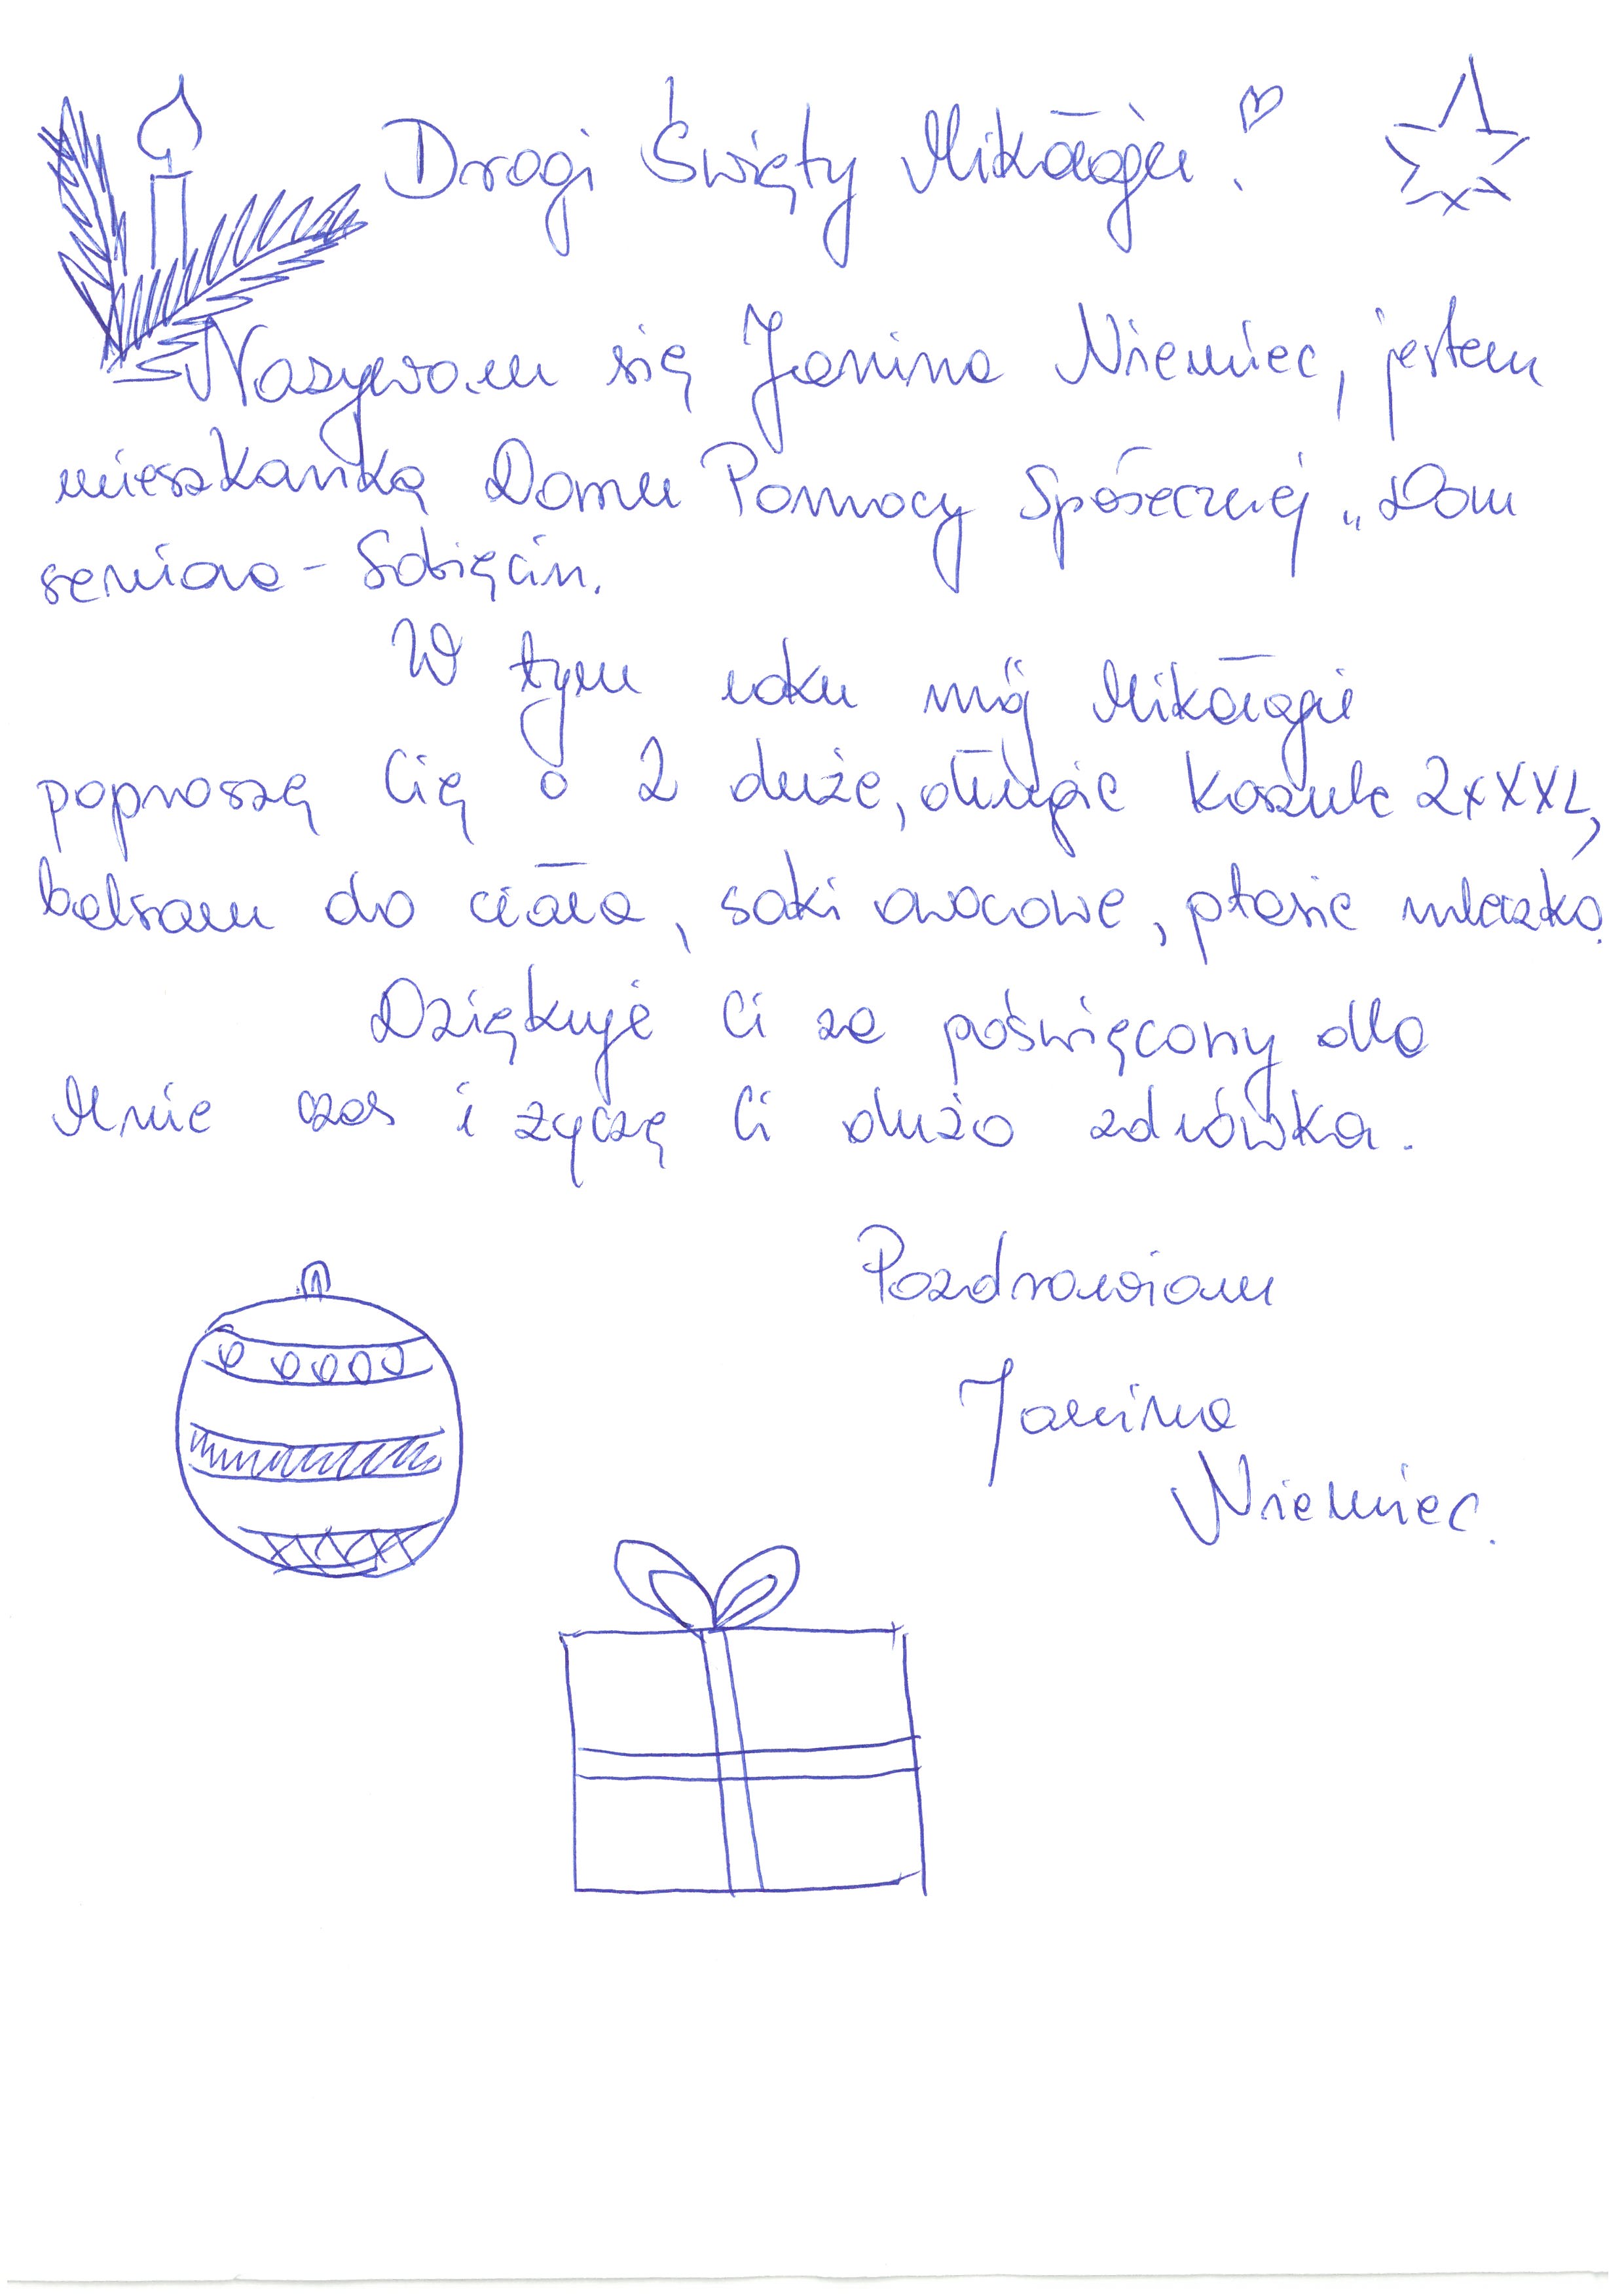 Drogi Święty Mikołaju!
Nazywam się Janina Niemiec, jestem
mieszkanką Domu Pomocy Społecznej „Dom
seniora - Sobięcin.
W tym roku mój Mikołaju
poproszę Cię o 2 duże, długie koszule 2xXXL,
balsam do ciała, soki owocowe, ptasie mleczko.
Dziękuję Ci za poświęcony dla
Mnie czas i życzę Ci dużo zdrówka.
Pozdrawiam
Janina
Niemiec.